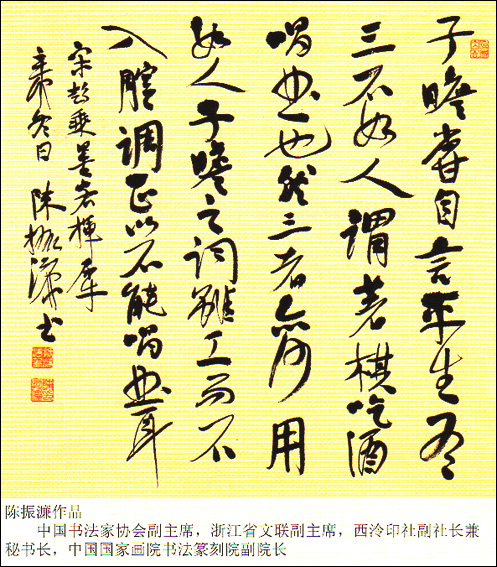 子瞻嘗自言平生有
三不如人謂著棋吃酒
唱曲也然三者亦何用
如人子瞻之词雖工而不
入腔調正以不能唱曲耳
宋彭乘墨客揮犀
冬日 陳振濂书
陈振濂作品
中国书法家协会副主席，浙江省文联副主席，西泠印社副社长兼
秘书长，中国国家画院书法篆刻院副院长